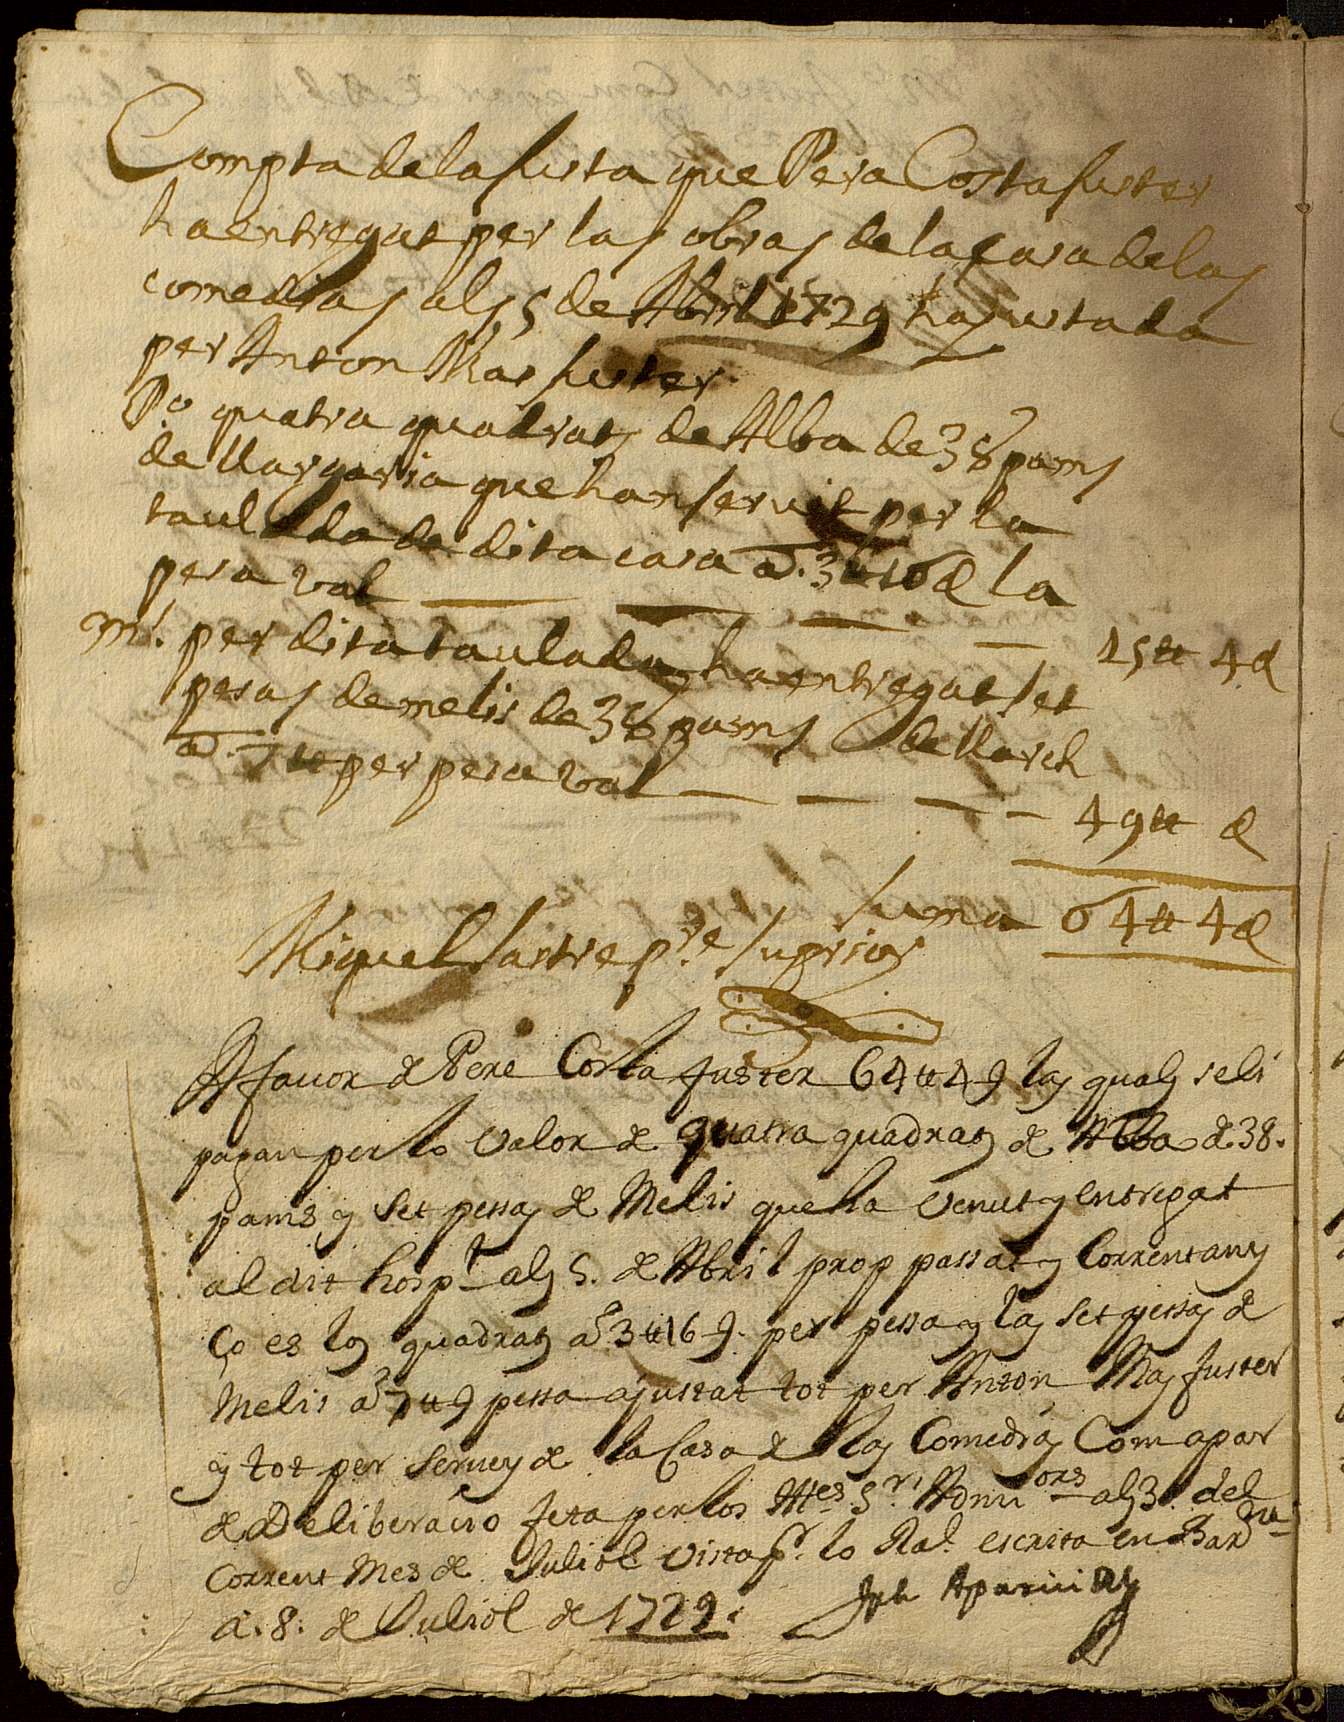 Compta de la fusta que Pera Costa fuster
ha entregat per las obras de la casa de las
comedias als 5 de Abril 1729 ha justada
per Anton Mas fuster
Po quatra quadrats de Alba de 38 pams
de llargaria que han servit per la
taulada de dita casa a. 3 tt 16 d la
pesa val 15 tt 4 d
mt. per dita taulada ha entregat set
pesas de melis de 38 pams de llarch
a. 7 tt per pesa val 49 tt d
suma 64 tt 4 d
Miquel Sastre pre. suprior
A favor de Pere Costa fuster 64 tt 4 9 las quals seli
pagan per lo valor de quatra quadrats de Alba de 38.
pams y set pessas de Melis que ha venut y entregat
al dit hospl als 5. de Abril prop passat y corrent any
ço es los quadrats a 3 tt 16 9. per pessa y las set pessas de
Melis a 7 tt 9 pessa ajustat tot per Anton Mas fuster
y tot per servey de la Casa de las Comedias Com apar
de Deliberacio feta per los Mes. Srs Admors als 3. del
Corrent Mes de Juliol vista pr. lo Ral. escrita en Barna
a. 8. de Juliol de 1729.
Jph Aparici